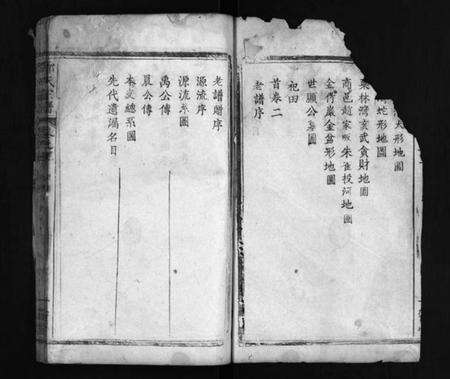 犬形地圖
蛇形地圖
林灣玄武貪財地圖
商邑趙家畈朱雀投河地圖
金竹巖金盆形地圖
世顯公房圖
祀田
首卷二
老譜序
老譜贈序
源流序
源流系圖
禹公傳
晨公傳
本支總系圖
先代遺蹟名目